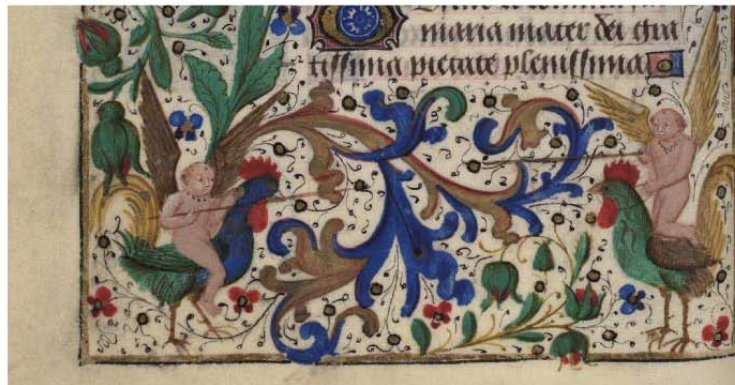 maria mater dei gra
tissima pietate plenissima